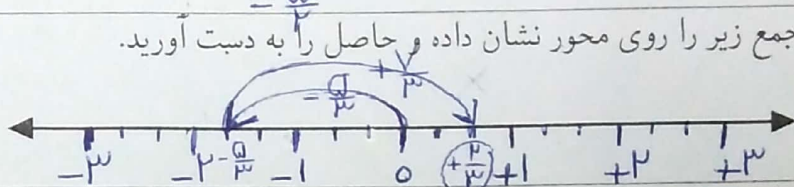 جمع زیر را روی محور نشان داده و حاصل را به دست آورید.
+ ۷/۳
- ۵/۳
-۳ -۲ -۵/۳ -۱ ۰ +۲/۳ +۱ +۲ +۳